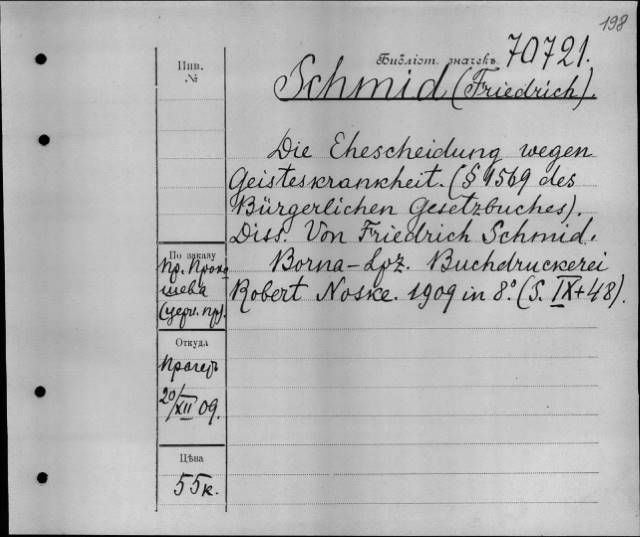 198
Бібліот. значекъ 70721.
Инв.
№
Schmid (Friedrich).
Die Ehescheidung wegen
Geisteskrankheit. (§ 1569 des
Bürgerlichen Gesetzbuches).
Diss. Von Friedrich Schmid.
Borna-Lpz. Buchdruckerei
Robert Noske. 1909 in 8.° (S. IX+48).
По заказу
пр. Прокошева
(церк. пр).
Откуда
20/XII 09.
Цѣна
55к.